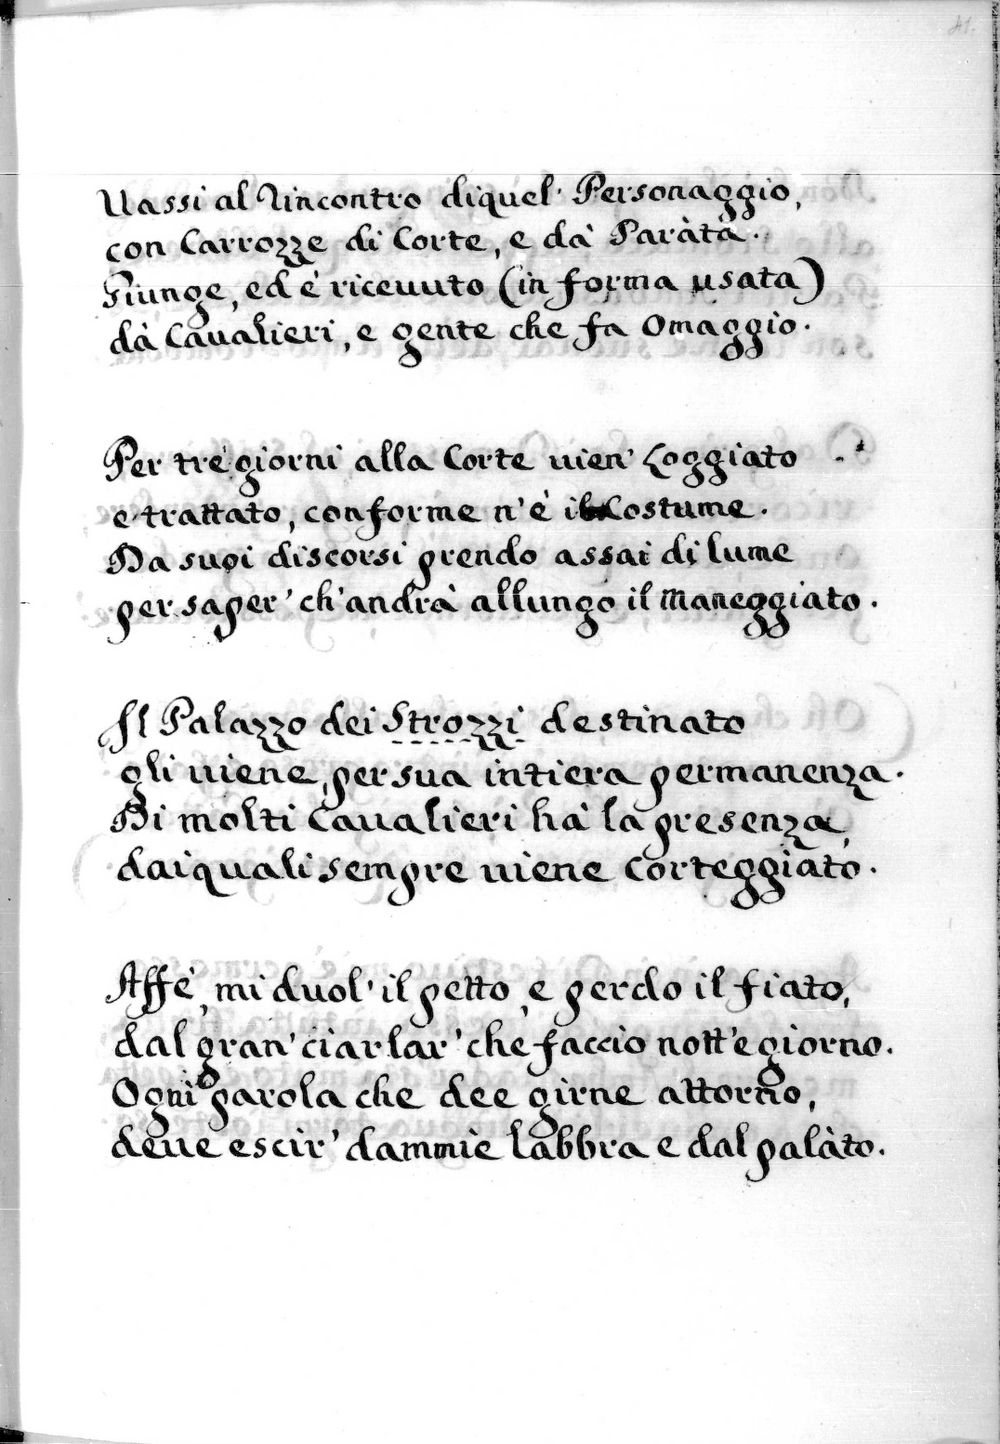 41.
Uassi al Rincontro di quel' Personaggio,
con Carrozze di Corte, e dà Paràta.
Giunge, ed è riceuuto (in forma usata)
dà Caualieri, e gente che fa Omaggio.
Per trè giorni alla Corte uien' Loggiato
e trattato, conforme n'è il Costume.
Da suoi discorsi prendo assai di lume
per saper' ch'andrà allungo il Maneggiato.
Il Palazzo dei Strozzi destinato
gli uiene, per sua intiera permanenza.
Di molti Caualieri hà la presenza,
dai quali sempre uiene Corteggiato.
Affè, mi duol' il petto, e perdo il fiato,
dal gran' ciarlar' che faccio nott'e giorno.
Ogni parola che dee girne attorno,
deue escir' dammie labbra e dal palàto.